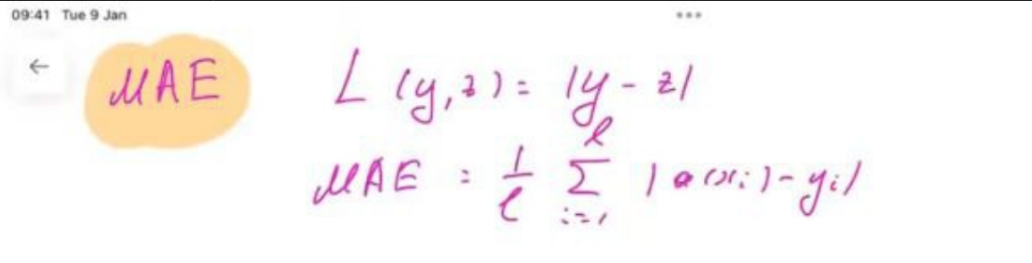 09:41 Tue 9 Jan
MAE L(y,z) = |y - z|
MAE = 1/ℓ ℓ∑i=1 |a(xi) - yi|